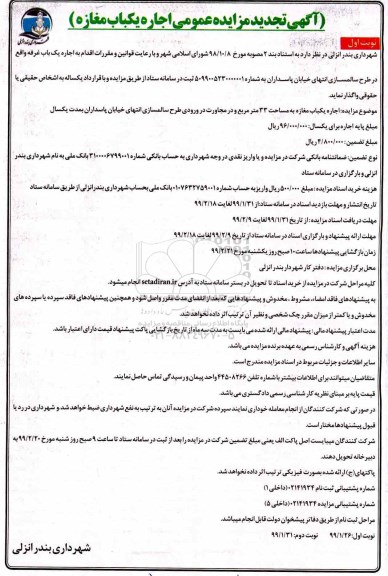 (آگهی تجدید مزایده عمومی اجاره یکباب مغازه)
نوبت اول
شهرداری بندر انزلی در نظر دارد به استناد بند ۲ مصوبه مورخ ۹۸/۱۰/۸ شورای اسلامی شهر و با رعایت قوانین و مقررات اقدام به اجاره یک باب غرفه واقع
در طرح سالمسازی انتهای خیابان پاسداران به شماره ۵۰۹۹۰۰۵۲۳۰۰۰۰۰۱ ثبت در سامانه ستاد از طریق مزایده و با قرارداد یکساله به اشخاص حقیقی یا
حقوقی واگذار نماید.
موضوع مزایده: اجاره یکباب مغازه به مساحت ۳۳ متر مربع و در مجاورت در ورودی طرح سالمسازی انتهای خیابان پاسداران بمدت یکسال
مبلغ پایه اجاره برای یکسال: ۹۶/۰۰۰/۰۰۰ ریال
مبلغ تضمین: ۴/۸۰۰/۰۰۰ ریال
نوع تضمین: ضمانتنامه بانکی شرکت در مزایده و یا واریز نقدی در وجه شهرداری به حساب بانکی شماره ۳۱۰۰۰۰۶۷۹۹۰۰۱ بانک ملی به نام شهرداری بندر
انزلی و بارگزاری در سامانه ستاد
هزینه خرید اسناد مزایده: مبلغ ۵۰۰/۰۰۰ ریال واریز به حساب شماره ۰۱۰۷۶۳۲۷۵۹۰۰۱ بانک ملی بحساب شهرداری بندرانزلی از طریق سامانه ستاد
تاریخ انتشار و مهلت بازدید اسناد در سامانه ستاد از ۹۹/۱/۳۱ لغایت ۹۹/۲/۱۸
مهلت دریافت اسناد مزایده: از تاریخ ۹۹/۱/۳۱ لغایت ۹۹/۲/۹
مهلت ارائه پیشنهاد و بارگزاری اسناد در سامانه ستاد از تاریخ ۹۹/۲/۹ لغایت ۹۹/۲/۱۸
زمان بازگشایی پیشنهادها ساعت ۱۰ صبح روز یکشنبه مورخ ۹۹/۲/۲۱
محل برگزاری مزایده: دفتر کار شهردار بندر انزلی
کلیه مراحل شرکت در مزایده از خرید اسناد تا تحویل در بستر سامانه ستاد به آدرس setadiran.ir انجام میشود.
به پیشنهادهای فاقد امضاء، مشروط، مخدوش و پیشنهادهایی که بعد از انقضای مدت مقرر واصل شود و همچنین پیشنهادهای فاقد سپرده یا سپرده های
مخدوش و یا کمتر از میزان مقرر چک شخصی و نظیر آن ترتیب اثر داده نخواهد شد.
مدت اعتبار پیشنهاد مالی: پیشنهاد مالی ارائه شده می بایست به مدت سه ماه از تاریخ بازگشایی پاکت پیشنهاد قیمت دارای اعتبار باشد.
هزینه آگهی و کارشناس رسمی به عهده برنده مزایده می باشد.
سایر اطلاعات و جزئیات مربوط در اسناد مزایده مندرج است.
متقاضیان میتوانند برای اطلاعات بیشتر با شماره تلفن ۴۴۵۰۸۲۶۶ واحد پیمان و رسیدگی تماس حاصل نمایند.
قیمت پایه بر مبنای نظریه کارشناسی رسمی دادگستری می باشد.
در صورتی که شرکت کنندگان از انجام معامله خودداری نمایند سپرده شرکت در مزایده آنان به ترتیب به نفع شهرداری ضبط خواهد شد و شهرداری در رد یا
قبول پیشنهادها مختار است.
شرکت کنندگان میبایست اصل پاکت الف یعنی مبلغ تضمین شرکت در مزایده را بعد از ثبت در سامانه ستاد تا ساعت ۹ صبح روز شنبه مورخ ۹۹/۲/۲۰ به
دبیرخانه تحویل دهند.
پاکتهای (ج) ارائه شده بصورت فیزیکی ترتیب اثر داده نخواهد شد.
شماره پشتیبانی ثبت نام ۰۲۱۴۱۹۳۴ (داخلی ۱)
شماره پشتیبانی مزایده ۰۲۱۴۱۹۳۴ (داخلی ۵)
مراحل ثبت نام از طریق دفاتر پیشخوان دولت قابل انجام میباشد.
نوبت اول: ۹۹/۱/۲۶ نوبت دوم: ۹۹/۱/۳۱
شهرداری بندر انزلی